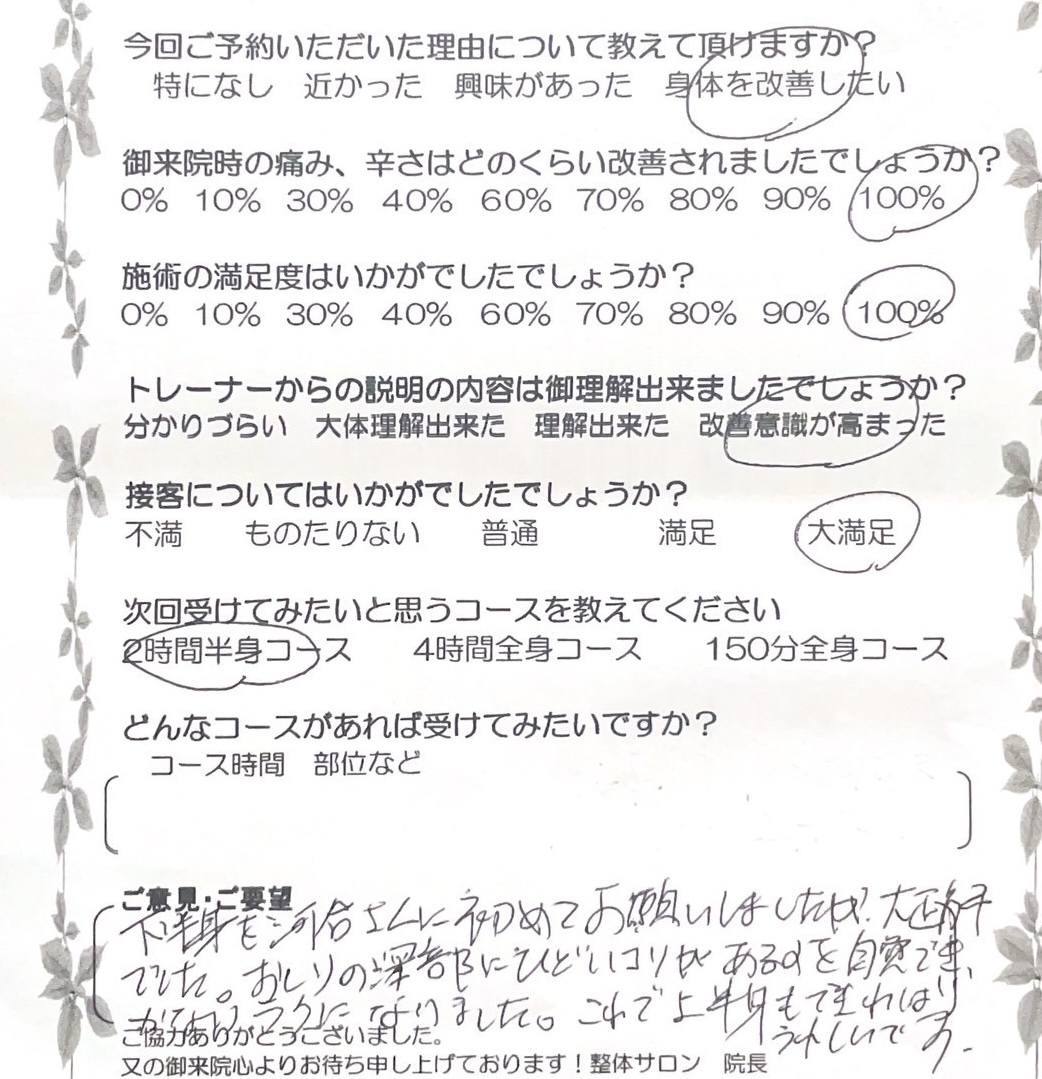 今回ご予約いただいた理由について教えて頂けますか？
特になし 近かった 興味があった 身体を改善したい
御来院時の痛み、辛さはどのくらい改善されましたでしょうか？
0% 10% 30% 40% 60% 70% 80% 90% 100%
施術の満足度はいかがでしたでしょうか？
0% 10% 30% 40% 60% 70% 80% 90% 100%
トレーナーからの説明の内容は御理解出来ましたでしょうか？
分かりづらい 大体理解出来た 理解出来た 改善意識が高まった
接客についてはいかがでしたでしょうか？
不満 ものたりない 普通 満足 大満足
次回受けてみたいと思うコースを教えてください
2時間半身コース 4時間全身コース 150分全身コース
どんなコースがあれば受けてみたいですか？
コース時間 部位など
ご意見・ご要望
下半身を河合さんに初めてお願いしましたが、大正解
でした。おしりの深部にひどいコリがあるのを自覚でき、
かなりラクになりました。これで上半身もできれば
うれしいです。
ご協力ありがとうございました。
又の御来院心よりお待ち申し上げております！整体サロン 院長